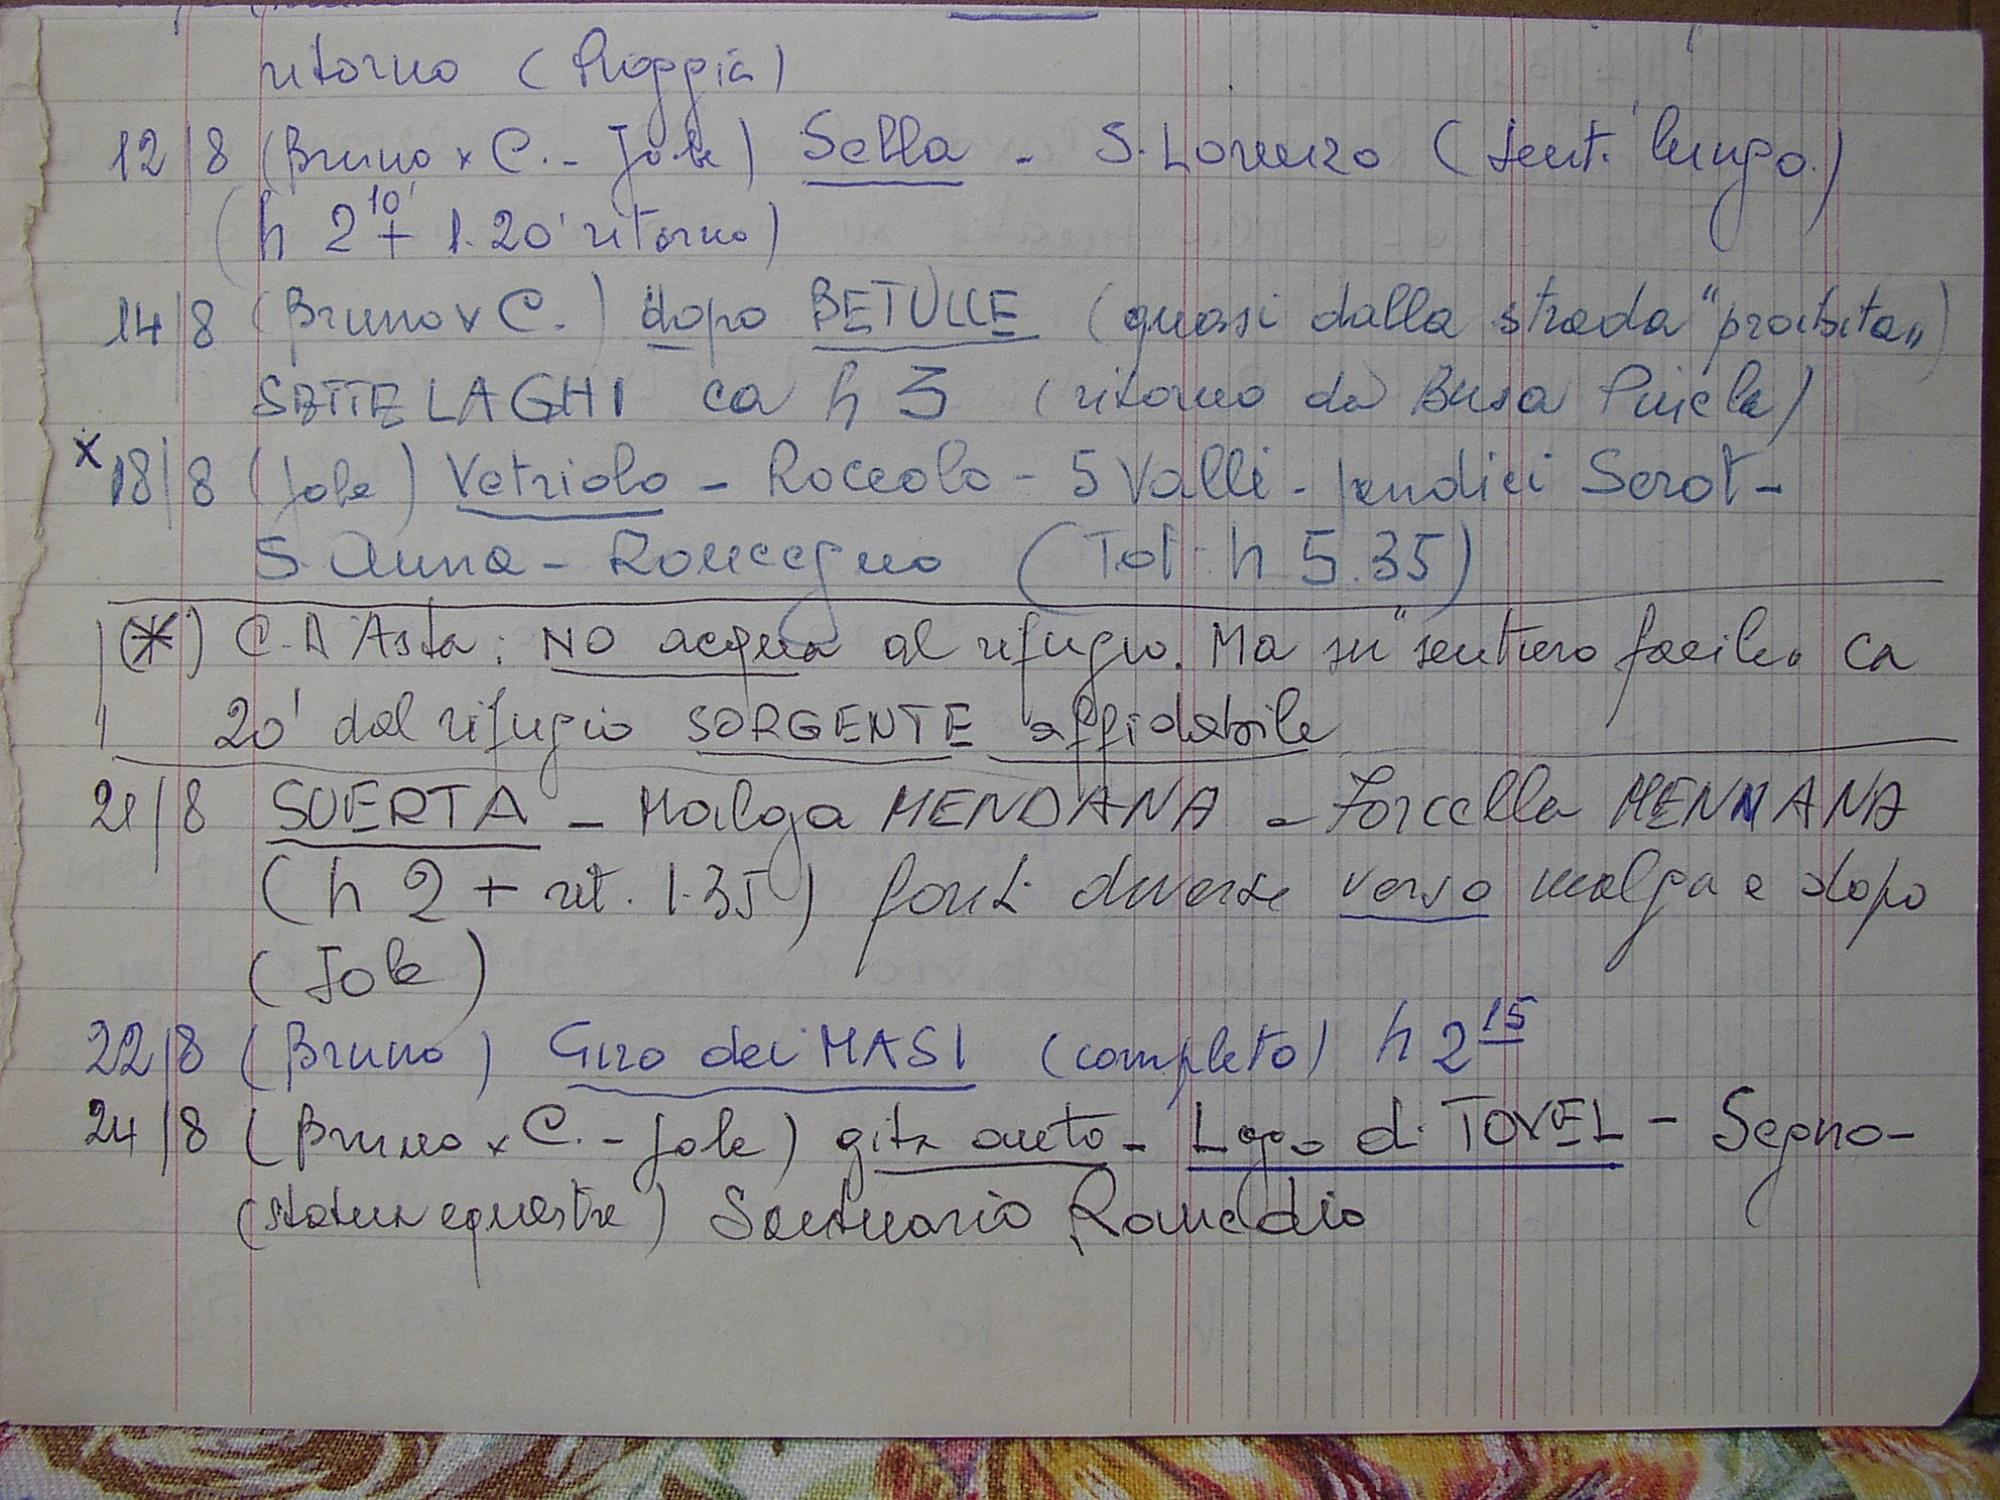 ritorno (Pioggia)
12/8 (Bruno x C. - Jole) Sella - S. Lorenzo (sent. lungo.)
(h 2 10' + 1.20' ritorno)
14/8 (Bruno x C.) dopo BETULLE (quasi dalla strada "proibita")
SETTE LAGHI ca h 3 (ritorno da Busa)
x 18/8 (Jole) Vetriolo - Roccolo - 5 Valli - pendici Serot -
S. Anna - Roncegno (Tot. h 5.35)
(*) C. D'Asta: NO acqua al rifugio. Ma su "sentiero facile" ca
20' dal rifugio SORGENTE affidabile
21/8 SUERTA - Malga MENDANA - Forcella MENDANA
(h 2 + rit. 1.35) fonti diverse verso malga e dopo
(Jole)
22/8 (Bruno) Giro dei MASI (completo) h 2 15
24/8 (Bruno x C. - Jole) gita auto - Lago di TOVEL - Segno -
(statua equestre) Santuario Romedio